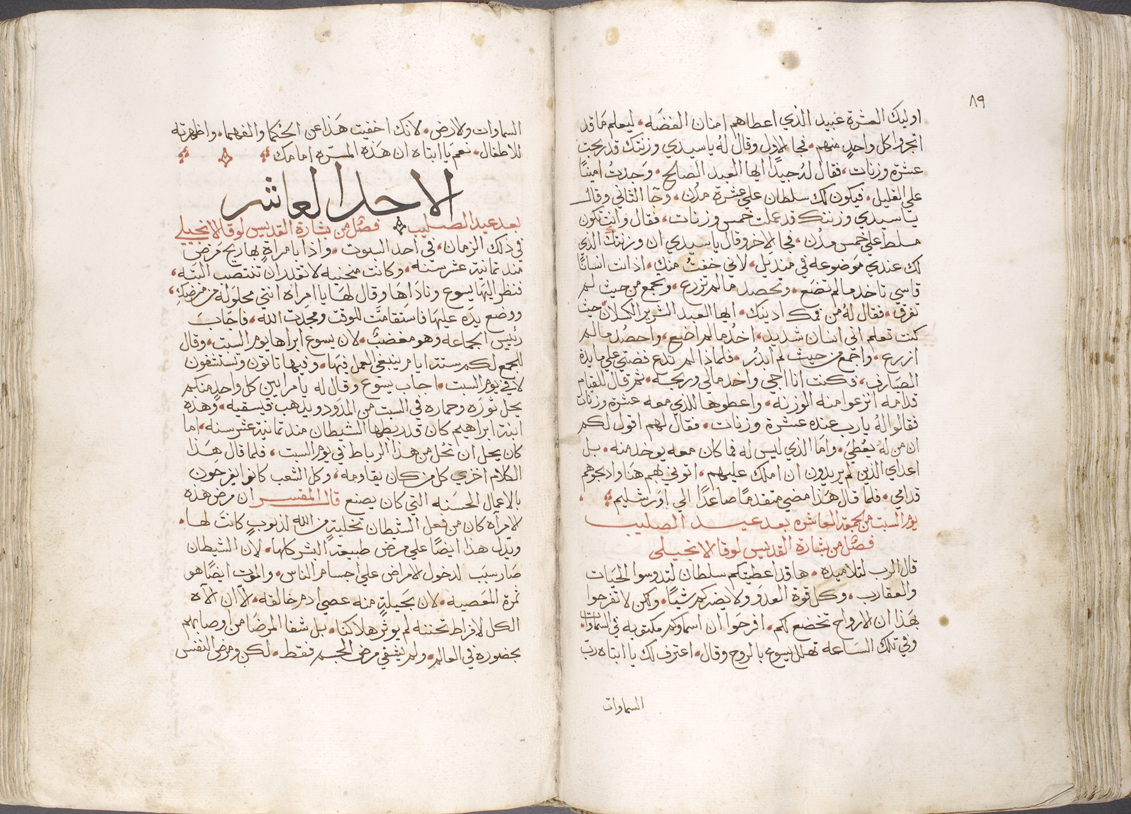 ٨٩
اوليك العشرة عبيد الذي اعطاهم امنان الفضه، ليعلم ما قد
اتجروا كل واحدٍ منهم، فجا الاول وقال له يا سيدي وزنتك قد ربحت
عشرة وزنات، فقال له جيدًا ايها العبد الصالح، وجدت امينًا
علي القليل، فيكون لك سلطان علي عشرة مدن، وجا الثاني وقال
يا سيدي وزنتك قد عملت خمس وزنات، فقال وانت تكون
مسلط علي خمس مدن، فجا الاخر وقال يا سيدي ان وزنتك الذي
لك عندي موضوعه في منديل، لاني خفت منك، اذ انت انسانًا
قاسي تاخد ما لم تضع، وتحصد ما لم تزرع، وتجمع من حيث لم
تفرق، فقال له من فمك ادينك، ايها العبد الشرير الكسلان حيث
كنت تعلم اني انسان شديد، اخد ما لم اضع، واحصد ما لم
ازرع، واجمع من حيث لم ابدر، فلماذا لم تدع فضتي علي مايدة
الصيارف، وكنت انا اجي واخد مالي وربحه، ثم قال للقيام
قدامه انزعوا منه الوزنه، واعطوها للذي معه عشرة وزنات
فقالوا له يا رب عنده عشرة وزنات، فقال لهم اقول لكم
ان من له يعطي، واما الذي ليس له فما كان معه يوخد منه، بل
اعداي الذين لم يريدون ان املك عليهم، اتوني بهم هنا وادبحوهم
قدامي، فلما قال هذا مضي متقدمًا صاعدًا الي اورشليم
يوم السبت من الجمعة العاشره بعد عيد الصليب
فصل من بشارة القديس لوقا الانجيلي
قال الرب لتلاميده، ها قد اعطيتكم سلطان لتدوسوا الحيات
والعقارب، وكل قوة العدو ولا يضركم شيًا، ولكن لا تفرحوا
بهذا ان الارواح تخضع لكم، افرحوا ان اسماوكم مكتوبه في السماوات،
وفي تلك الساعه تهلل يسوع بالروح وقال، اعترف لك يا ابتاه رب
السماوات
السماوات والارض، لانك اخفيت هذا عن الحكما والفهما، واظهرته
للاطفال، نعم يا ابتاه ان هذه المسرة امامك
الاحد العاشر
بعد عيد الصليب فصل من بشارة القديس لوقا الانجيلي
في ذلك الزمان، في احد السبوت، واذا بامراةٍ بها ريح مرضي
مند تمانية عشر سنه، وكانت منحنيه لا تقدر ان تنتصب البته،
فنظر اليها يسوع وناداها وقال لها يا امراه انتي محلوله من مرضك،
ووضع يده عليها فاستقامت للوقت ومجدت الله، فاجاب
رييس الجماعه وهو مغضب، لان يسوع ابراها يوم السبت، وقال
للجمع لكم ستة ايام ينبغي العمل فيها، وفيها تاتون وتستشفون
لا في يوم السبت، اجاب يسوع وقال له يا مرايين كل واحدٍ منكم
يحل ثوره وحماره في السبت من المدود ويدهب فيسقيه، وهذه
ابنة ابراهيم كان قد ربطها الشيطان مند تمانية عشر سنه، اما
كان يحل ان تحل من هذا الرباط في يوم السبت، فلما قال هذا
الكلام اخزي كل من كان يقاومه، وكل الشعب كانوا يفرحون
بالاعمال الحسنه التي كان يصنع قال المفسر ان مرض هذه
الامراه كان من فعل الشيطان بتخلية من الله لذنوبٍ كانت لها،
ويدل هذا ايضًا علي مرض طبيعة البشر كلها، لان الشيطان
صار سبب لدخول الامراض علي اجسام الناس، والموت ايضًا هو
ثمرة المعصيه، لان بحيلةٍ منه عصي ادم خالقه، الا ان الاه
الكل لافراط تحننه لم يوثر هلاكنا، بل شفا المرضا من اوصابهم
بحضوره في العالم، ولم يشفي مرض الجسم فقط، لكن ومرض النفس